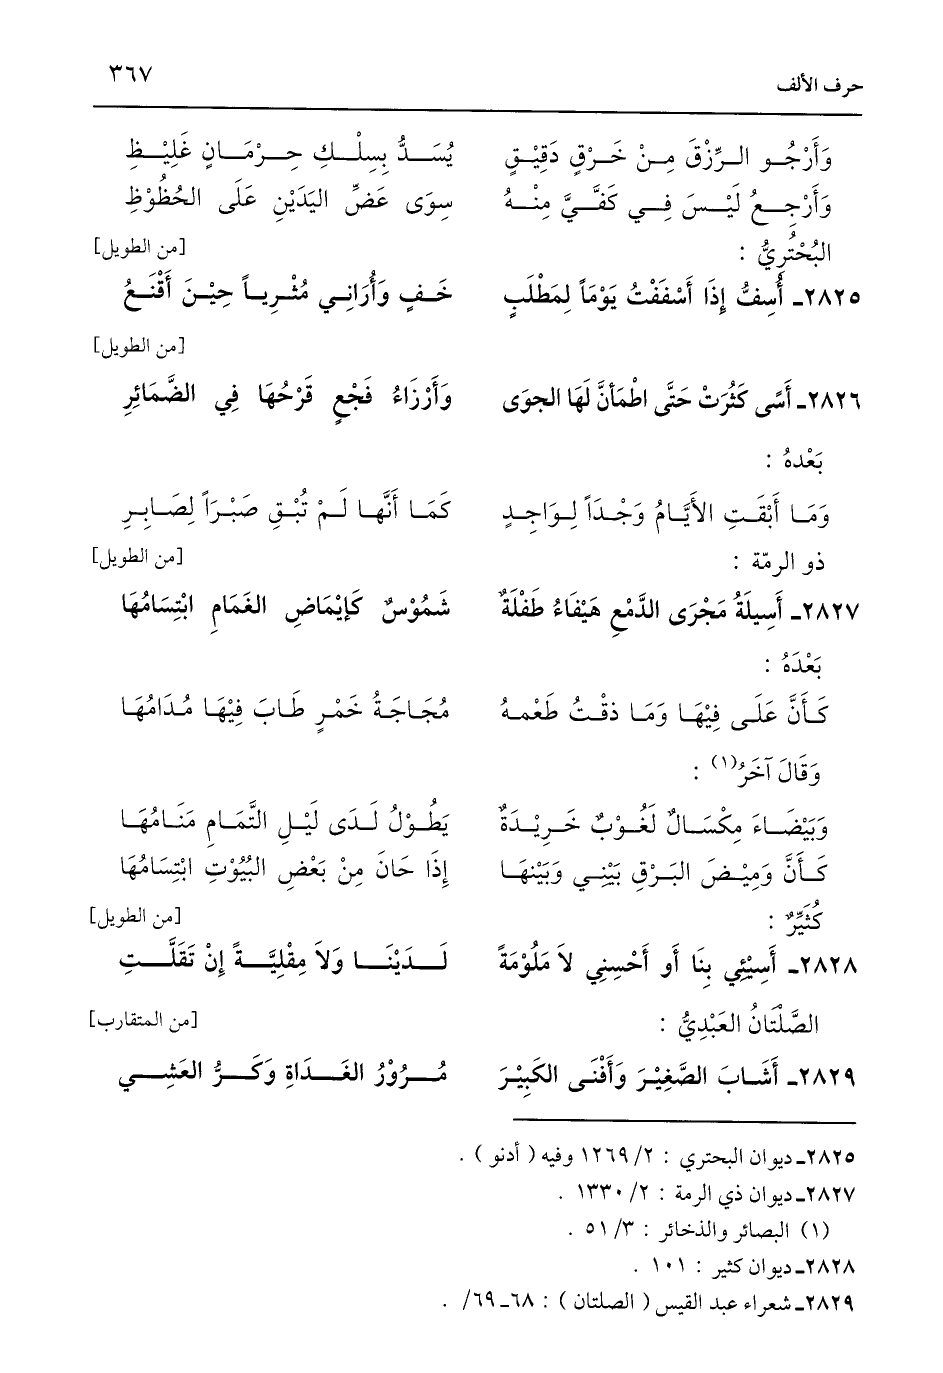 حرف الألف ٣٦٧
وَأَرْجُو الرِّزْقَ مِنْ خَرْقٍ دَقِيْقٍ يُسَدُّ بِسِلْكِ حِرْمَانٍ غَلِيْظِ
وَأَرْجِعُ لَيْسَ فِي كَفَّيَّ مِنْهُ سِوَى عَضِّ اليَدَيْنِ عَلَى الحُظُوْظِ
البُحْتُرِيُّ : [من الطويل]
٢٨٢٥ـ أُسِفُّ إِذَا أَسْفَفْتُ يَوْمَاً لِمَطْلَبٍ خَفٍ وَأُرَانِي مُثْرِياً حِيْنَ أَقْنَعُ
[من الطويل]
٢٨٢٦ـ أَسًى كَثُرَتْ حَتَّى اطْمَأنَّ لَهَا الجوَى وَأَرْزَاءُ فَجْعٍ قَرْحُهَا فِي الضَّمَائِرِ
بَعْدهُ :
وَمَا أَبْقَتِ الأَيَّامُ وَجْدَاً لِوَاجِدٍ كَمَا أَنَّها لَمْ تُبْقِ صَبْرَاً لِصَابِرِ
ذو الرمّة : [من الطويل]
٢٨٢٧ـ أَسِيلَةُ مَجْرَى الدَّمْعِ هَيْفَاءُ طَفْلَةٌ شَمُوْسٌ كَإيْمَاضِ الغَمَامِ ابْتِسَامُهَا
بَعْدَهُ :
كَأَنَّ عَلَى فِيْهَا وَمَا ذقْتُ طَعْمهُ مُجَاجَةُ خَمْرٍ طَابَ فِيْهَا مُدَامُهَا
وَقَالَ آخَرُ(١) :
وَبَيْضَاءَ مِكْسَالٌ لَعُوْبٌ خَرِيْدَةٌ يَطُوْلُ لَدَى لَيْلِ التَّمَامِ مَنَامُهَا
كَأَنَّ وَمِيْضَ البَرْقِ بَيْنِي وَبَيْنهَا إِذَا حَانَ مِنْ بَعْضِ البُيُوْتِ ابْتِسَامُهَا
كُثَيِّرٌ : [من الطويل]
٢٨٢٨ـ أَسِيْئِي بِنَا أو أَحْسِنِي لاَ مَلُوْمَةً لَدَيْنَا وَلاَ مِقْلِيَّةً إِنْ تَقَلَّتِ
الصَّلْتَانُ العَبْدِيُّ : [من المتقارب]
٢٨٢٩ـ أَشَابَ الصَّغِيْرَ وَأَفْنَى الكَبِيْرَ مُرُوْرُ الغَدَاةِ وَكَرُّ العَشِي
٢٨٢٥ـ ديوان البحتري : ٢/ ١٢٦٩ وفيه ( أدنو ) .
٢٨٢٧ـ ديوان ذي الرمة : ٢/ ١٣٣٠ .
(١) البصائر والذخائر : ٣/ ٥١ .
٢٨٢٨ـ ديوان كثير : ١٠١ .
٢٨٢٩ـ شعراء عبد القيس ( الصلتان ) : ٦٨ـ ٦٩/ .